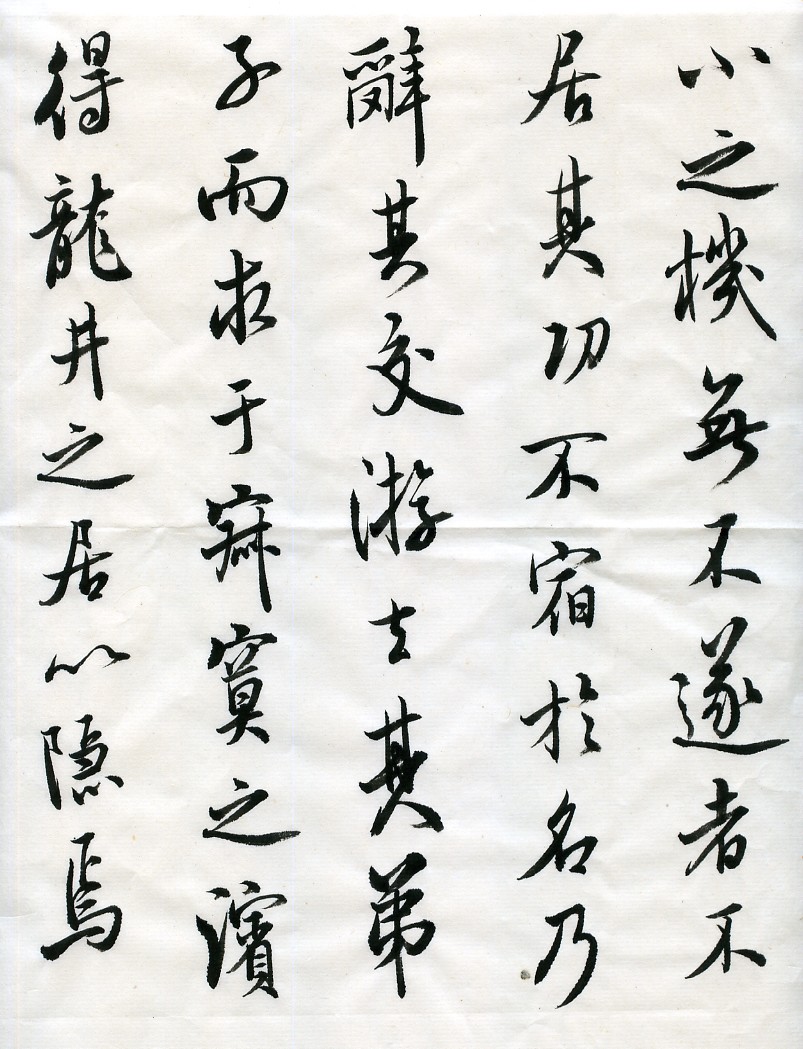 小之機無不遂者不
居其功不宿於名乃
辭其交游去其弟
子而求于寂寞之濱
得龍井之居以隱焉